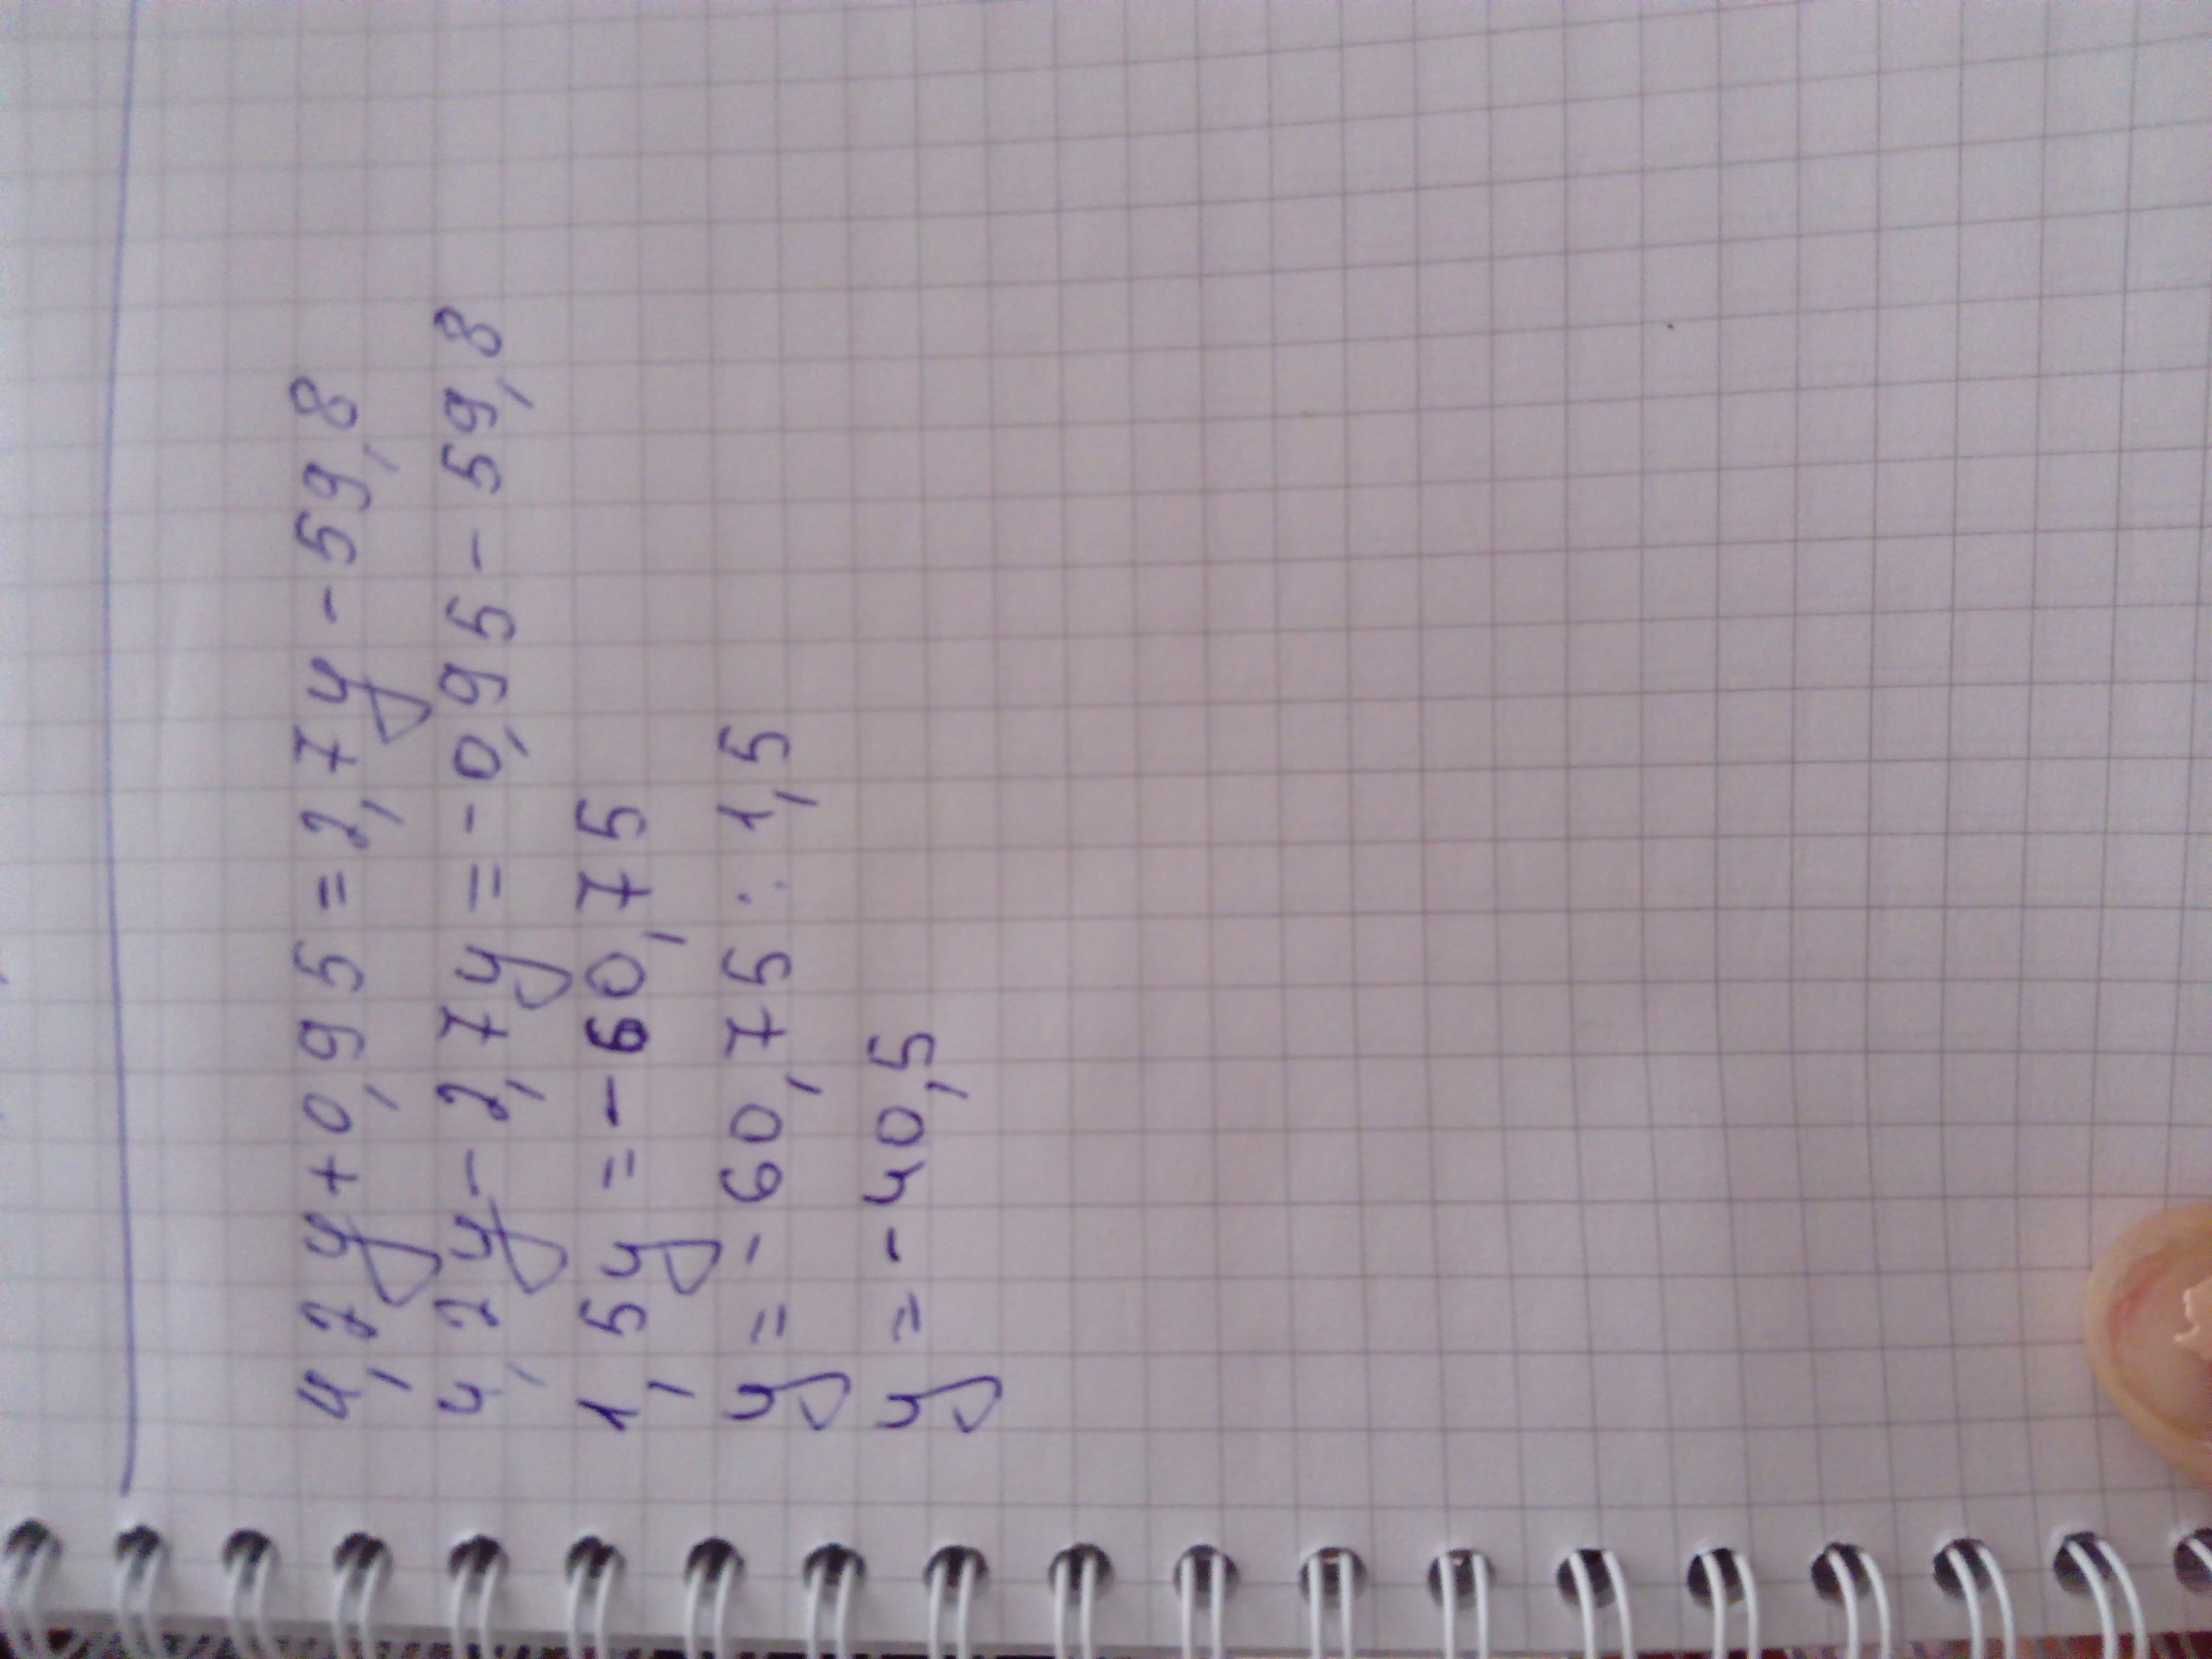 4,2y+0,95=2,7y-59,8
4,2y-2,7y=-0,95-59,8
1,5y=-60,75
y=-60,75:1,5
y=-40,5